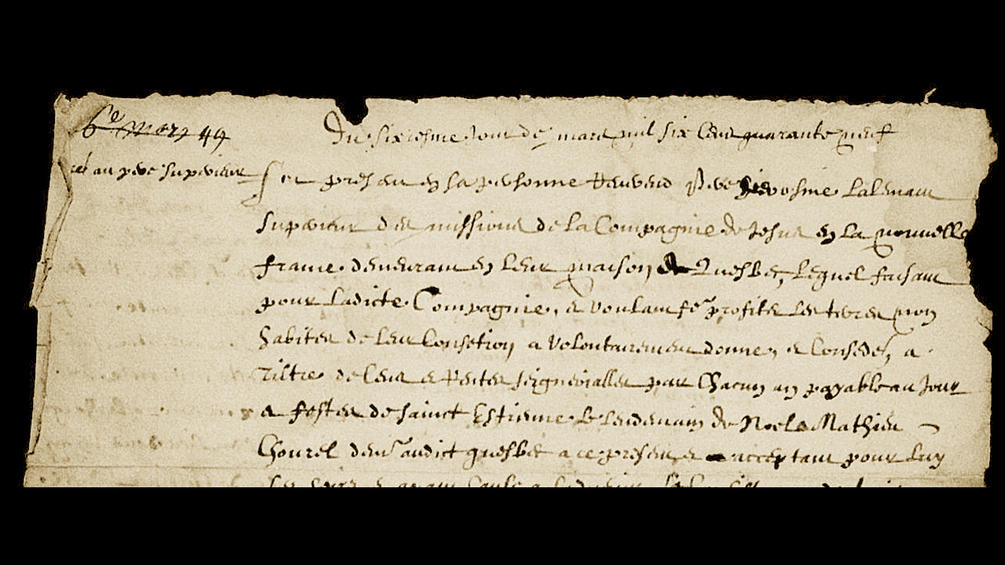 6e mars 49
au pere superieur
Du sixiesme Jour de mars mil six Cens quarante neuf
fut presen en sa personne Reverend pere hierosme Lalemant
Superieur des missions de la Compagnie de Jesus en la nouvelle
france demeurant en leur maison de Quesbec, Lequel faisant
pour Ladicte Compagnie, & voulant fe profiter les terres non
habitez de leur Consetion a volontairement donne, & Consede, a
Tiltre de Cens & Rentes seigneurialles par Chacun an payable au Jour
& feste de sainct Estienne Le lendemain de Noel a Mathieu
Chourel dem audict quesbec a ce present & acceptant pour Luy